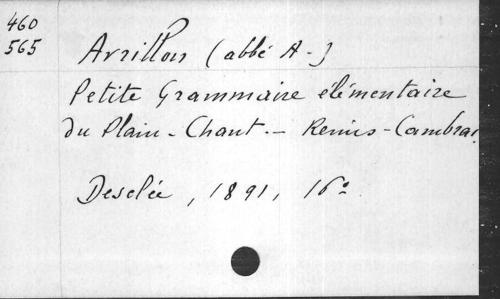 460
565
Avrillon (abbé A-)
Petite Grammaire élémentaire
du Plain-Chant. - Reims-Cambrai
Desclée, 1891, 16°